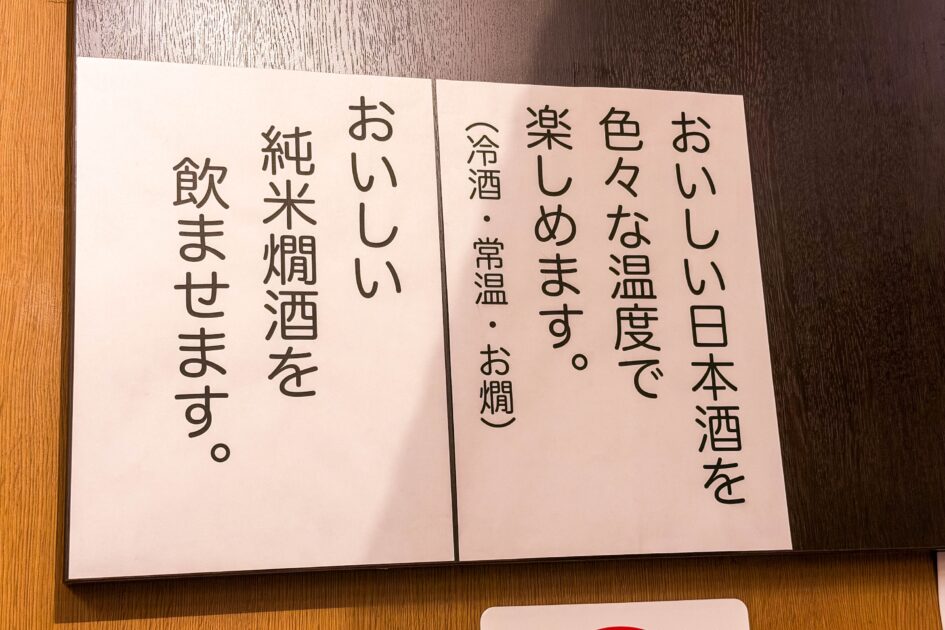 おいしい日本酒を
色々な温度で
楽しめます。
(冷酒・常温・お燗)
おいしい
純米燗酒を
飲ませます。